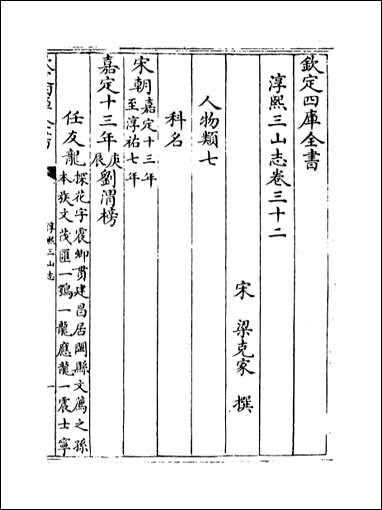 欽定四庫全書
淳熙三山志卷三十二
宋 梁克家 撰
人物類七
科名
宋朝嘉定十三年
至淳祐七年
嘉定十三年庚辰劉渭榜
任友龍探花字震卿貫建昌居閩縣文薦之孫
本族文茂匯一鶚一龍應龍一震士寧
淳熙三山志
一